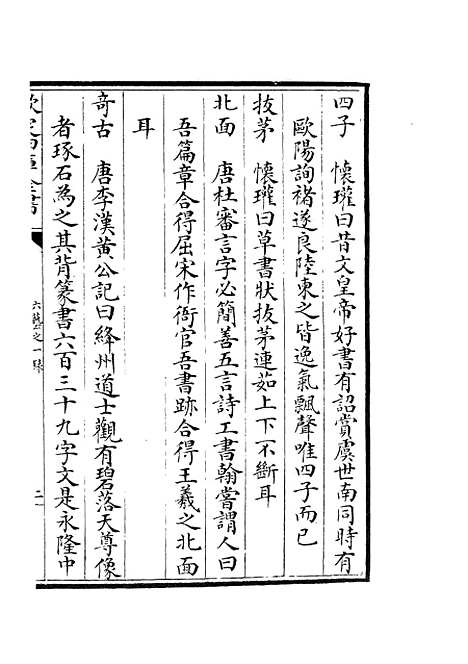 四子　懷瓘曰昔文皇帝好書有詔賞虞世南同時有
歐陽詢褚遂良陸柬之皆逸氣飄聲唯四子而已
拔茅　懷瓘曰草書狀拔茅連茹上下不斷耳
北面　唐杜審言字必簡善五言詩工書翰嘗謂人曰
吾篇章合得屈宋作衙官吾書跡合得王羲之北面
耳
奇古　唐李漢黃公記曰絳州道士觀有碧落天尊像
者琢石為之其背篆書六百三十九字文是永隆中
欽定四庫全書
六藝之一錄